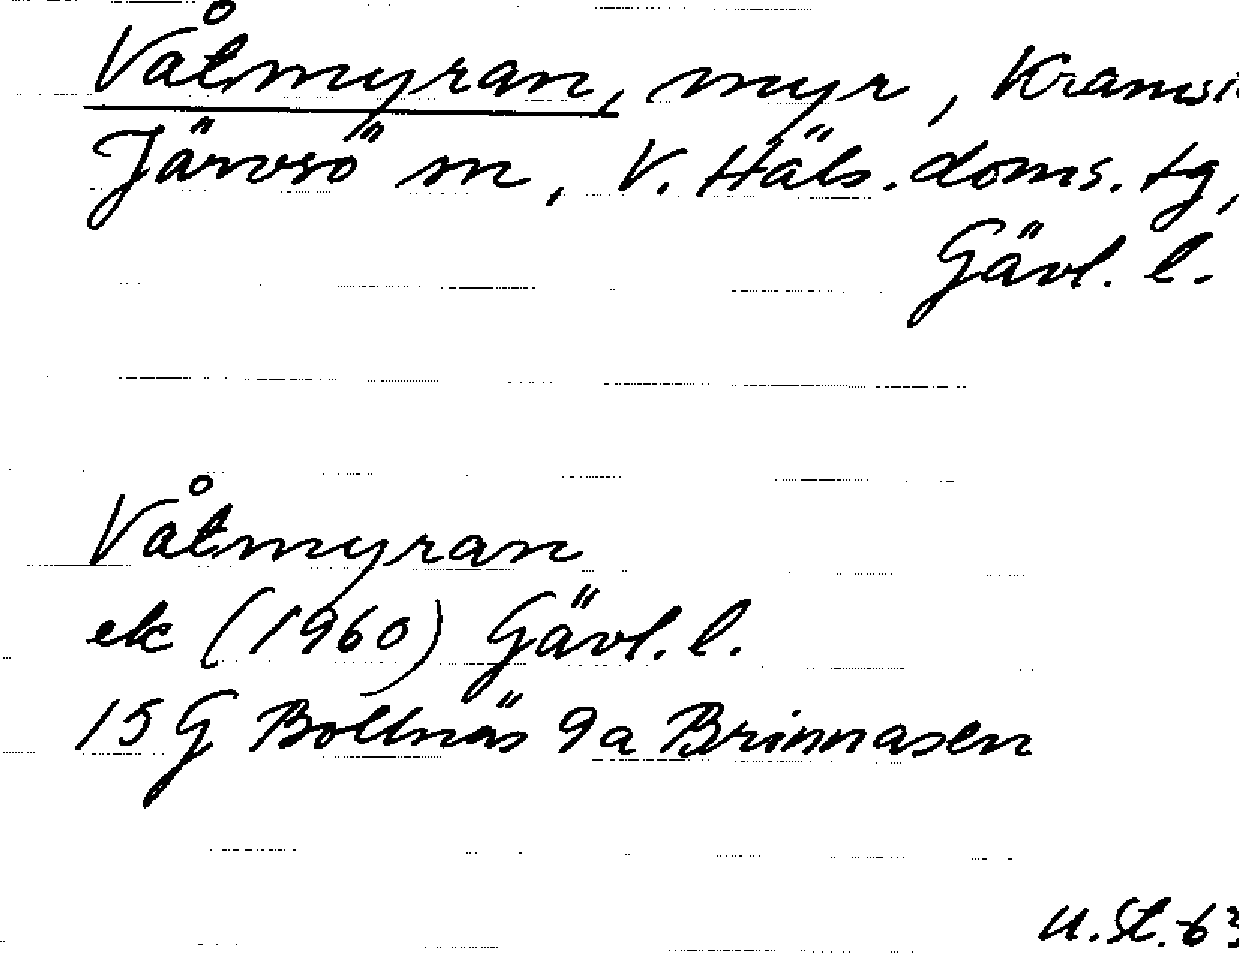 Våtmyran, myr, Kramsi
Järvsö sn, V. Häls. doms. tg,
Gävl. l.
Våtmyran
ek (1960) Gävl. l.
15 G Bollnäs 9a Brinnasen
U. St. 63